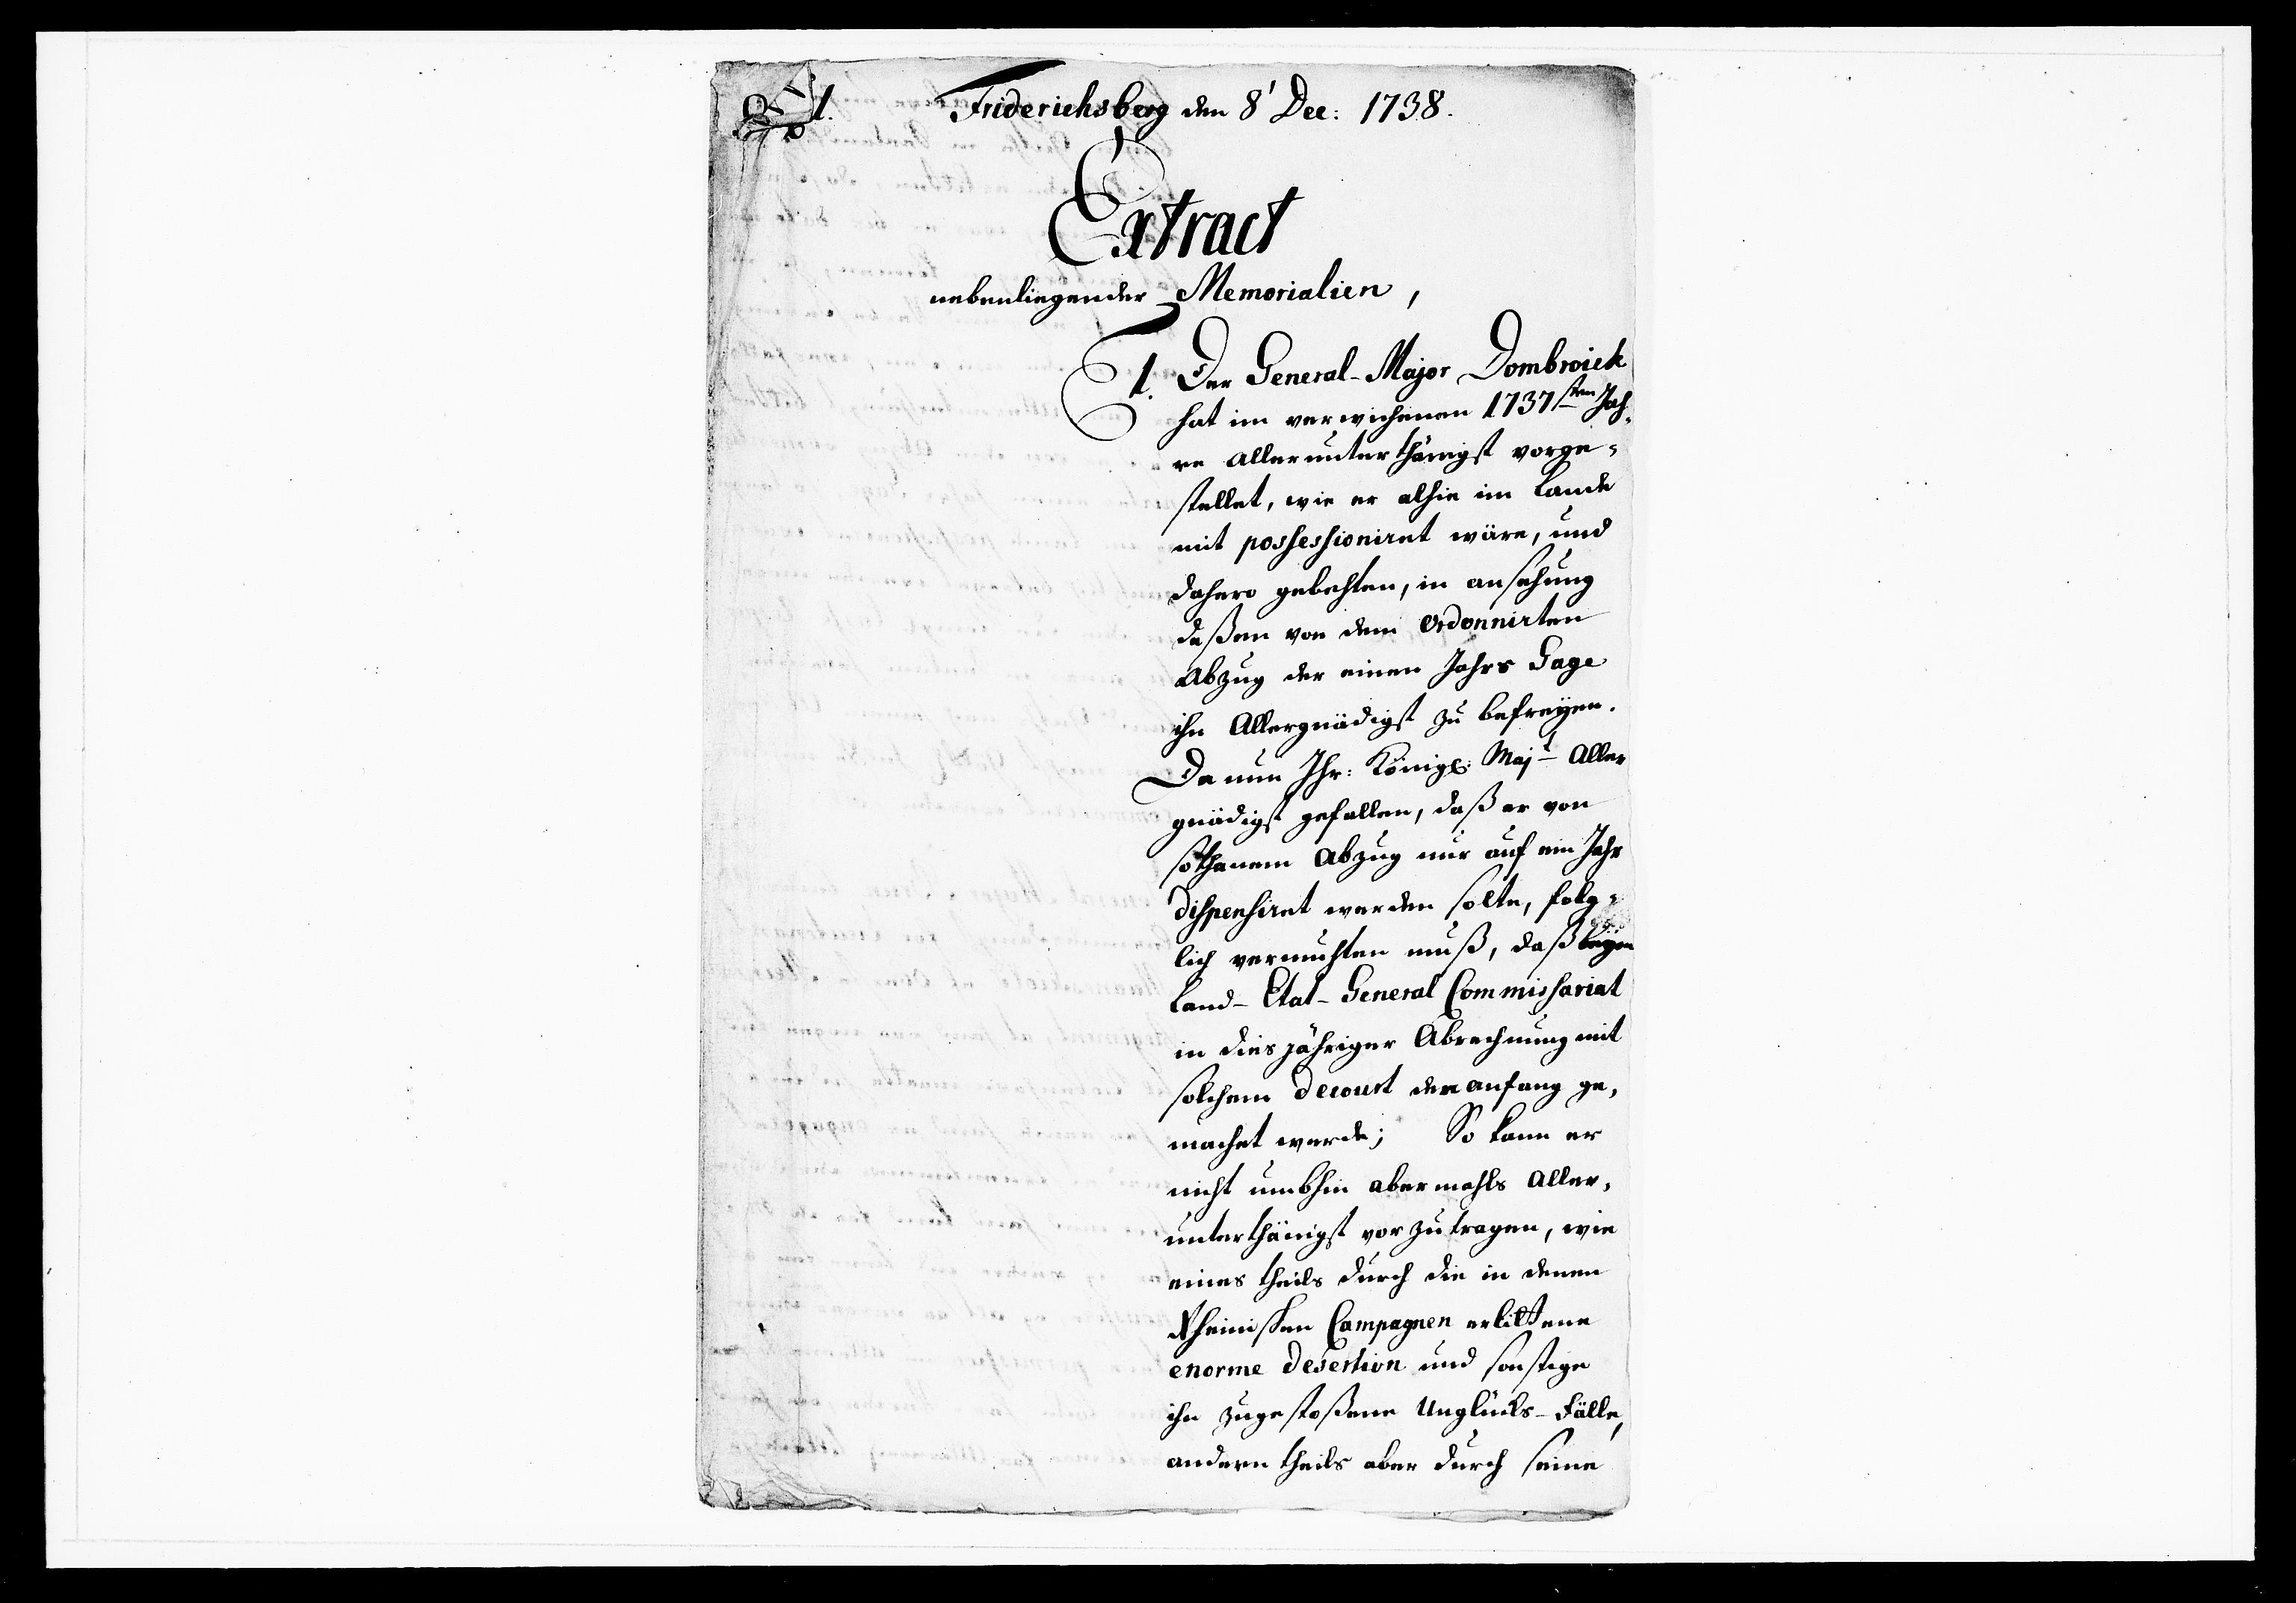 1. Friderichsberg den 8' Dec: 1738.
Extract
nebenliegender Memorialien,
1. Der General-Major Dombroick
hat im verwichenen 1737sten Jah-
re allerunterthänigst vorge-
stellet, wie er alhie im Lande
mit possessioniret wäre, und
dahero gebehten, in ansehung
deßen von dem ordonnirten
Abzug der einen Jahrs Gage
ihn Allergnädigst zu befreyen.
Da nun Ihr: Königl: Majt Aller
gnädigst gefallen, daß er von
sothanem Abzug nur auf ein Jahr
dispensiret werden solte, folg-
lich vermuhten muß, daß beym
Land-Etat-General Commissariat
in diesjähriger Abrechnung mit
solchem decourt der anfang ge-
machet werde; So kann er
nicht umbhin abermahls Aller-
unterthänigst vorzutragen, wie
eines theils durch die in denen
Rheinischen Campagnen erlittene
enorme desertion und sonstige
ihn zugestoßene Unglücks-Fälle,
andern theils aber durch seine